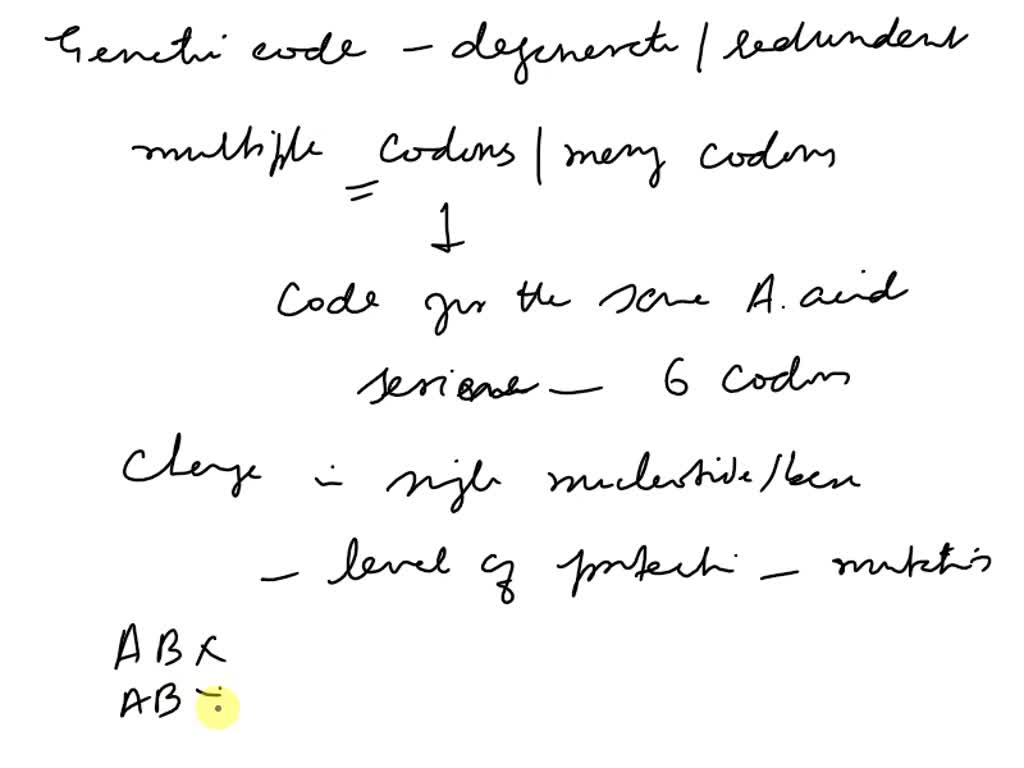 Genetic code - degenerate / redundent
multiple codons | many codons
code for the same A. acid
serine - 6 codons
change in single nucleotide/base
- level of protecti - mutatis
ABX
AB